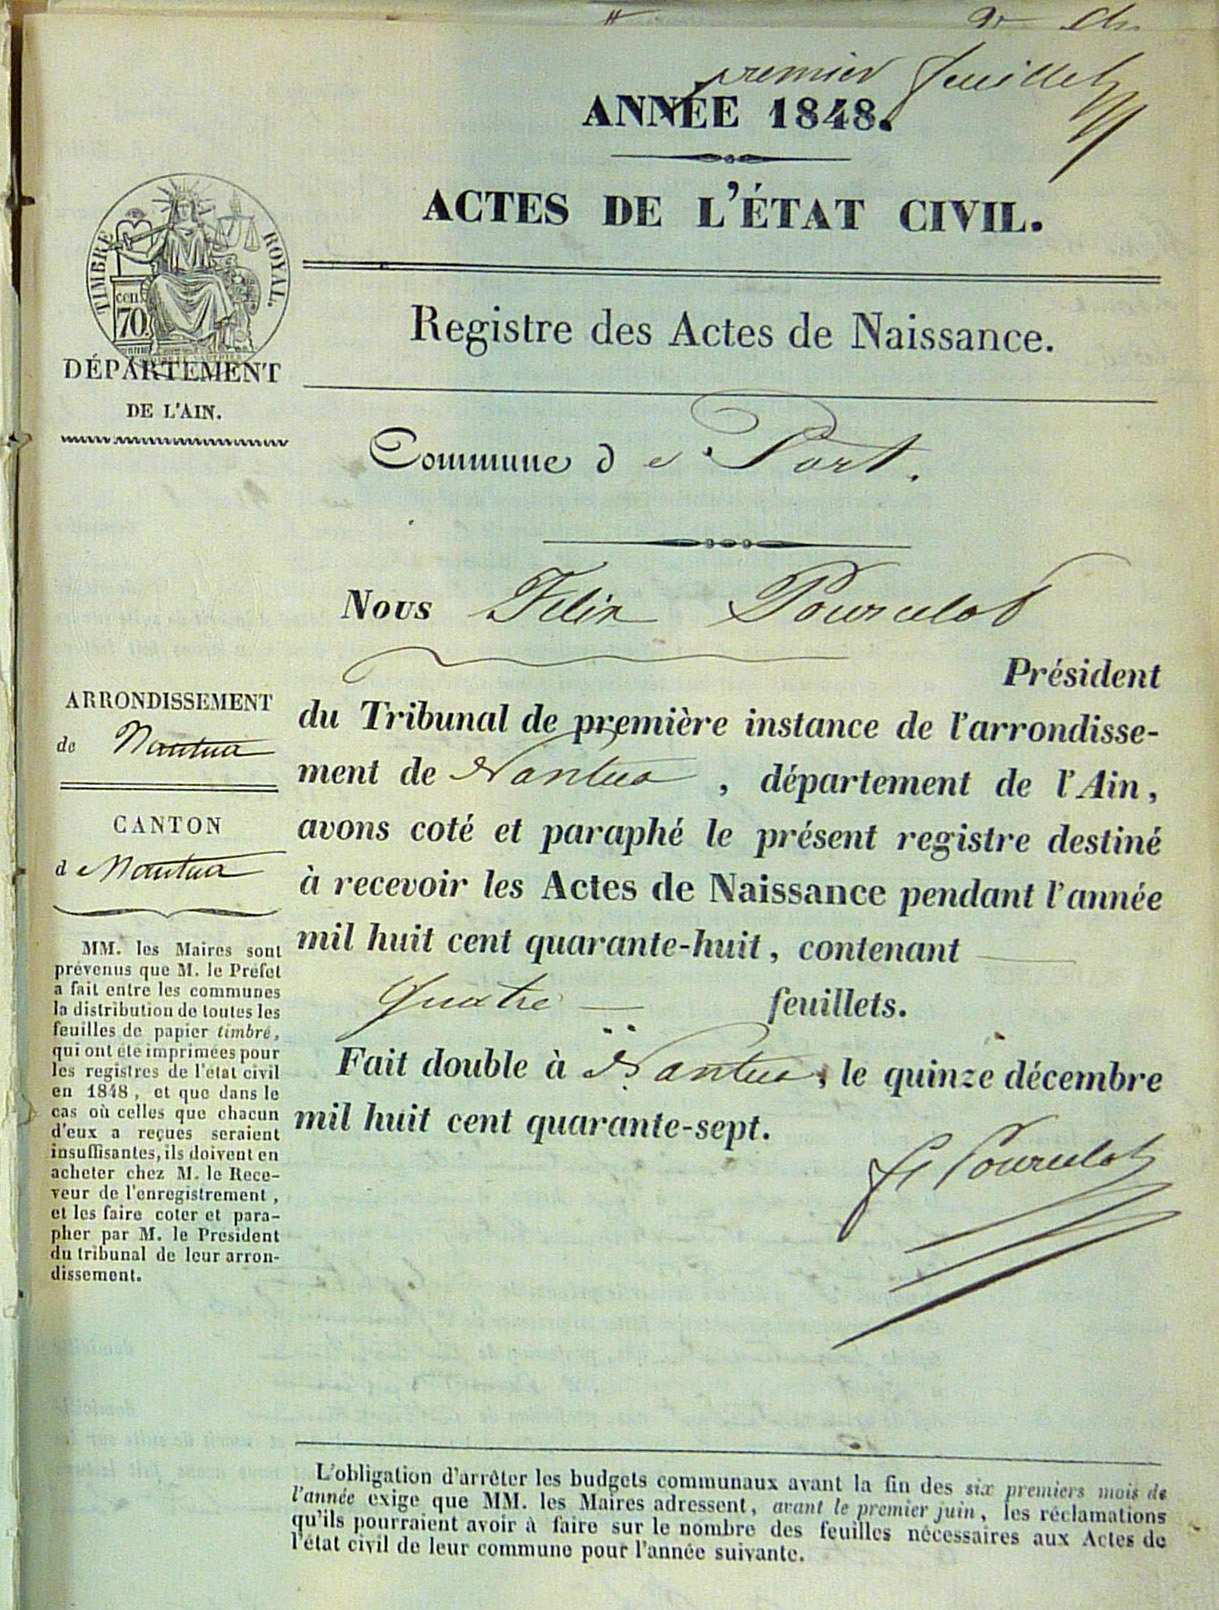 premier feuillet
ANNÉE 1848.
ACTES DE L'ÉTAT CIVIL.
TIMBRE ROYAL.
cen.
70
DÉPARTEMENT
DE L'AIN.
Registre des Actes de Naissance.
Commune de Port.
Nous Félix Pourcelot
Président
du Tribunal de première instance de l'arrondisse-
ment de Nantua, département de l'Ain,
avons coté et paraphé le présent registre destiné
à recevoir les Actes de Naissance pendant l'année
mil huit cent quarante-huit, contenant
quatre feuillets.
Fait double à Nantua, le quinze décembre
mil huit cent quarante-sept.
F Pourcelot
ARRONDISSEMENT
de Nantua
CANTON
de Nantua
MM. les Maires sont
prévenus que M. le Préfet
a fait entre les communes
la distribution de toutes les
feuilles de papier timbré,
qui ont été imprimées pour
les registres de l'état civil
en 1848, et que dans le
cas où celles que chacun
d'eux a reçues seraient
insuffisantes, ils doivent en
acheter chez M. le Rece-
veur de l'enregistrement,
et les faire coter et para-
pher par M. le Président
du tribunal de leur arron-
dissement.
L'obligation d'arrêter les budgets communaux avant la fin des six premiers mois de
l'année exige que MM. les Maires adressent, avant le premier juin, les réclamations
qu'ils pourraient avoir à faire sur le nombre des feuilles nécessaires aux Actes de
l'état civil de leur commune pour l'année suivante.